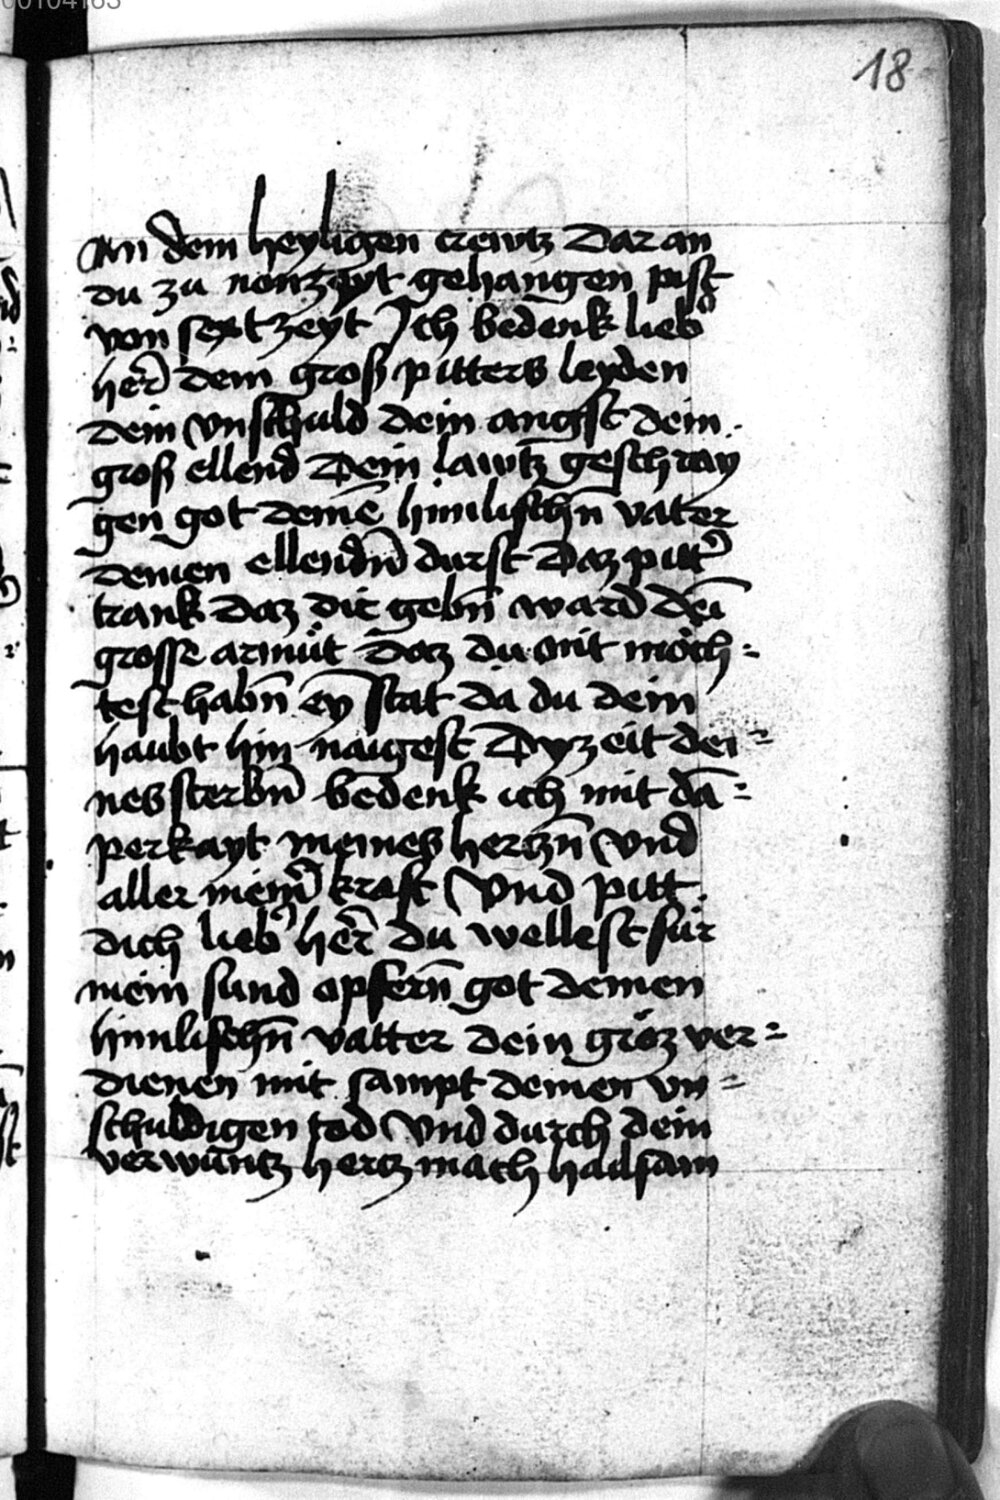 00104163
18
An dem heyligen crewtz Dar an
du zu nonzeyt gehangen pist
von sextzeyt Ich bedenk lieb᷑
her̄ dein groß pitters leyden
Dein vnschuld dein angst dein
groß ellend Dein lawtz geschray
gen got deinē himlischn̄ vater
Deinen ellendn̄ durst Daz pitt᷑
trank daz dir gebn̄ ward dei̅
grosse armůt Daz du nit möch=
test habn̄ ey̅ stat da du dein
haubt hin naigest Dy zeit dei=
nes sterbn̄ bedenk ich mit da̅=
perkayt meines hertzn̄ Vnd
aller mein᷑ kraft Vnd pitt
dich lieb᷑ her̄ du wellest für
mein sund opfern̄ got deinen
himlischn̄ vatter dein gröz ver=
dienen mit sampt deinen vn=
schuldigen tod Vnd durch dein
verwu̅ntz hertz mach hailsam